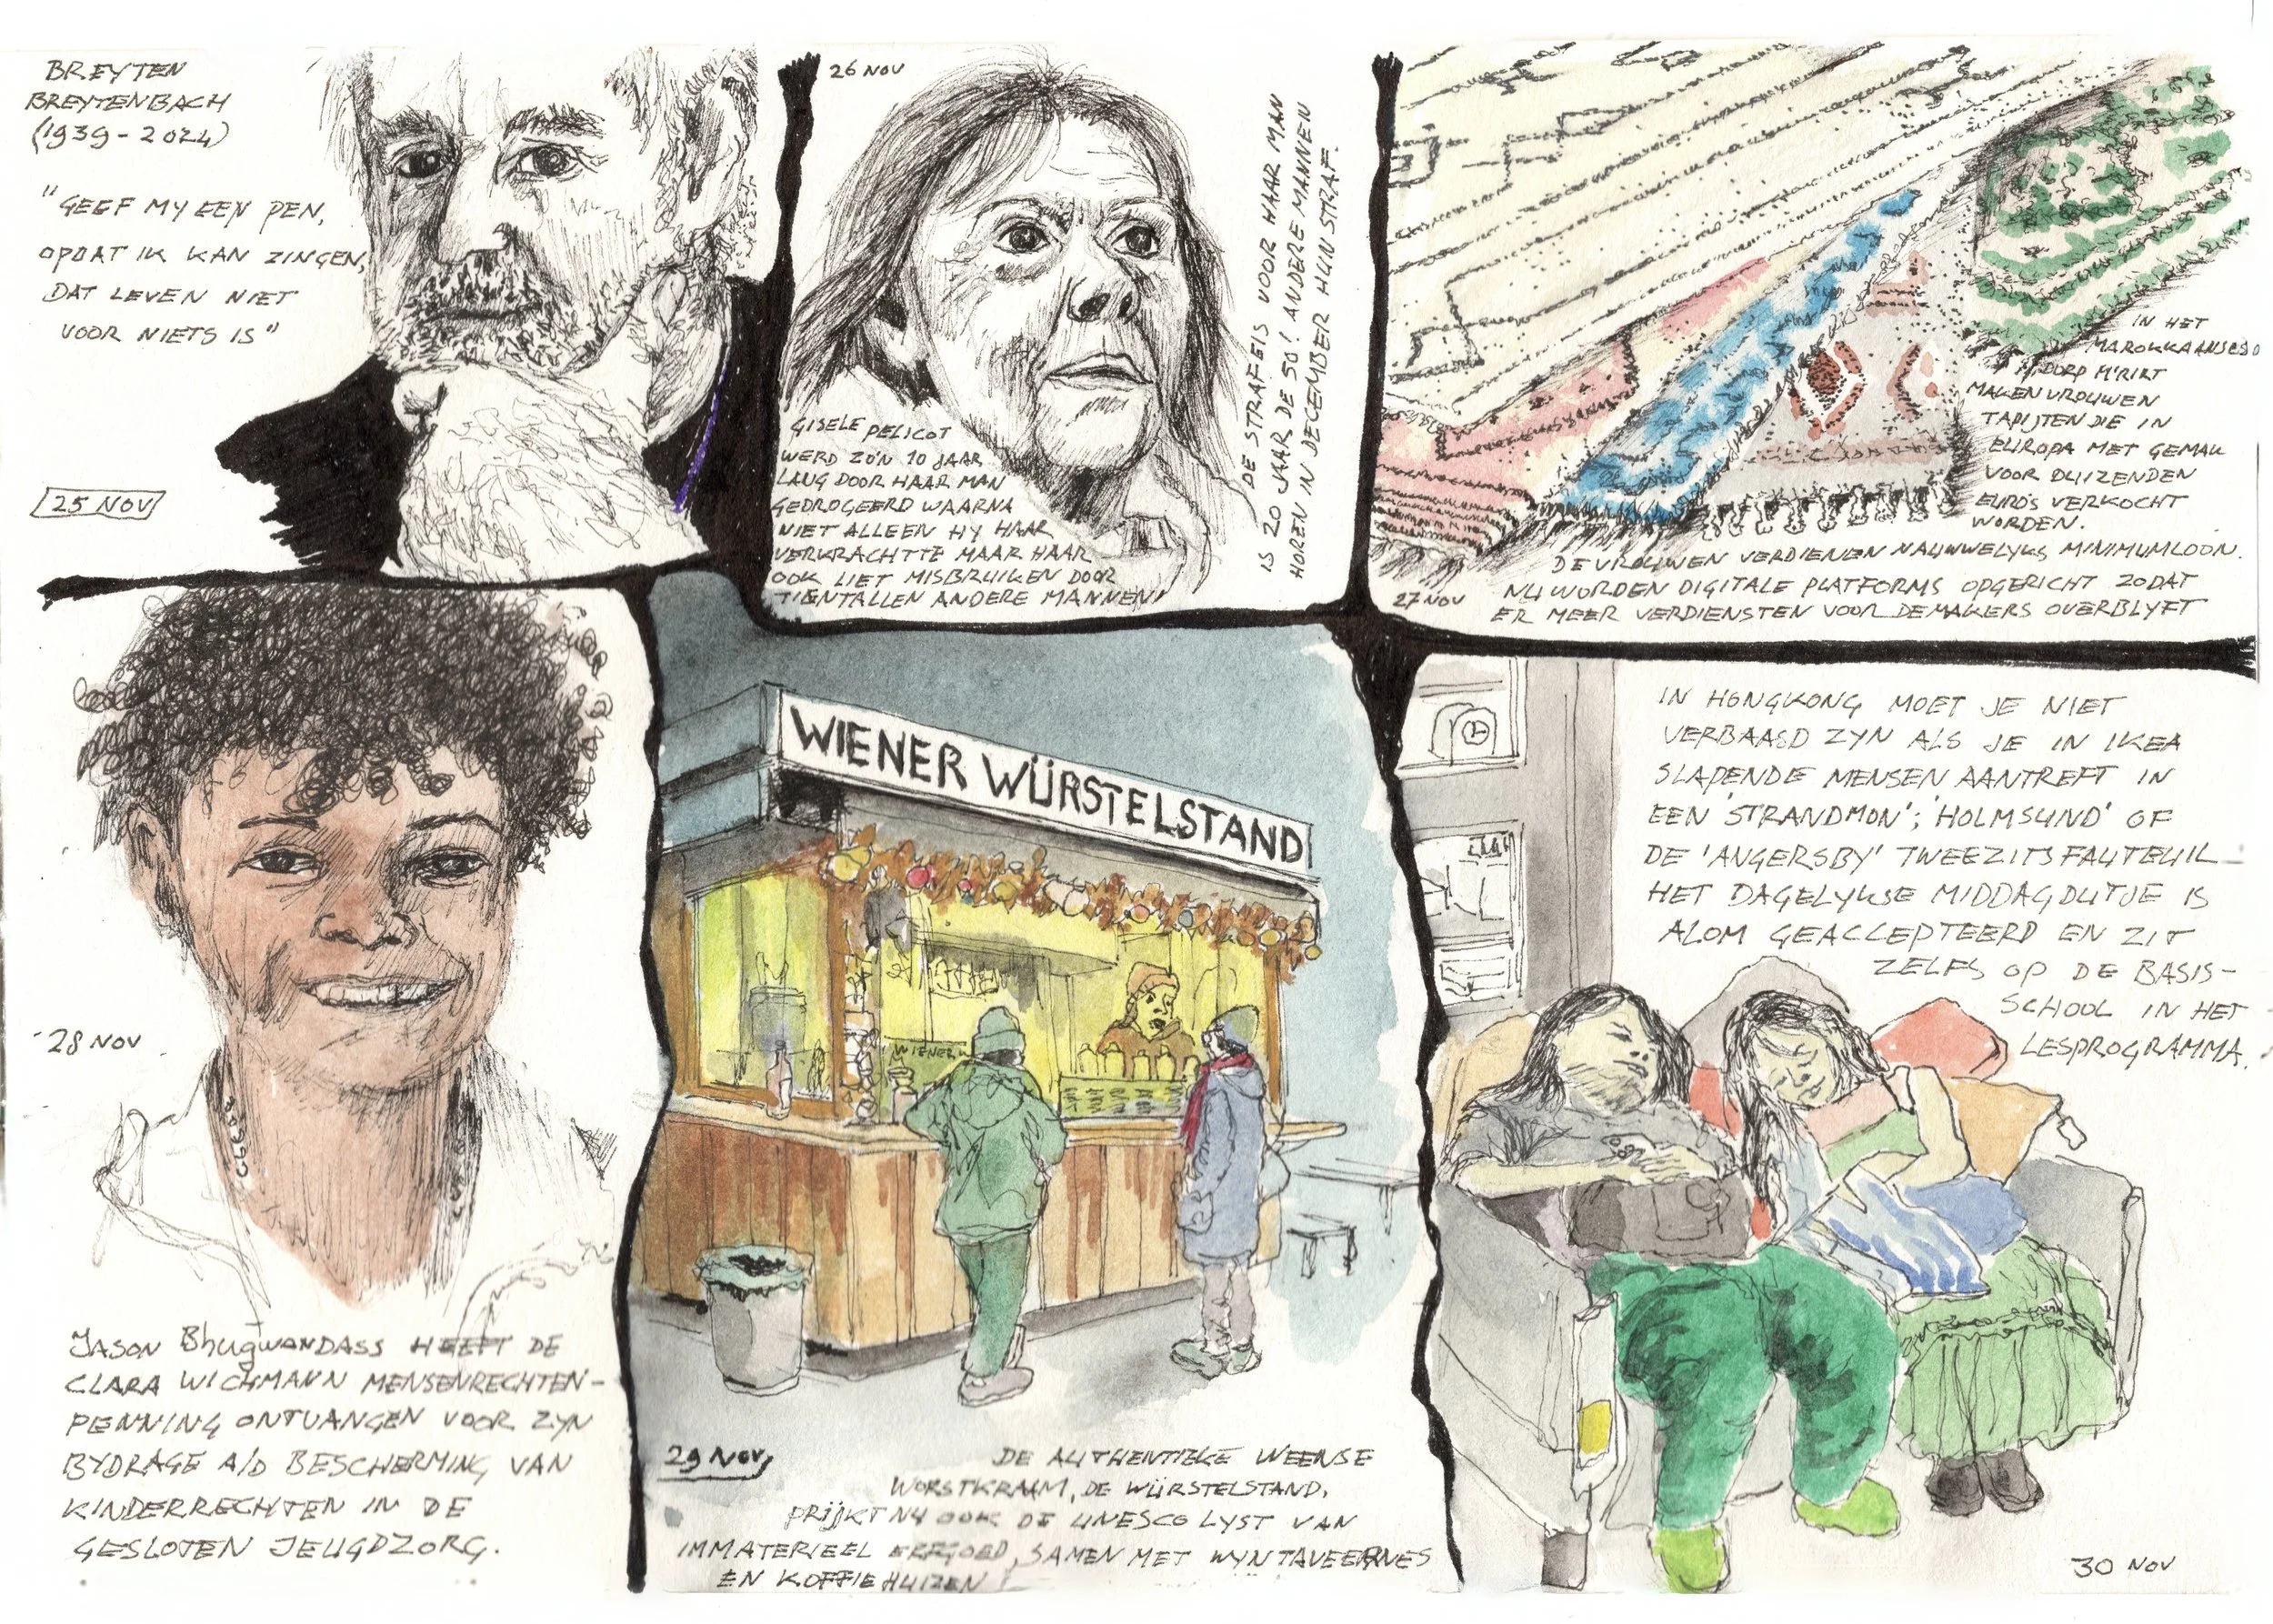 BREYTEN
BREYTENBACH
(1939-2024)
"GEEF MY EEN PEN,
OPDAT IK KAN ZINGEN,
DAT LEVEN NIET
VOOR NIETS IS"
25 NOV
26 NOV
GISELE PELICOT
WERD ZO'N 10 JAAR
LANG DOOR HAAR MAN
GEDROGEERD WAARNA
NIET ALLEEN HY HAAR
VERKRACHTTE MAAR HAAR
OOK LIET MISBRUIKEN DOOR
TIENTALLEN ANDERE MANNEN!
DE STRAFEIS VOOR HAAR MAN
IS 20 JAAR. DE 50! ANDERE MANNEN
HOREN IN DECEMBER HUN STRAF.
IN HET
MAROKKAANSE
DORP M'RIRT
MAKEN VROUWEN
TAPIJTEN DIE IN
EUROPA MET GEMAK
VOOR DUIZENDEN
EURO'S VERKOCHT
WORDEN.
DE VROUWEN VERDIENEN NAUWELYKS MINIMUMLOON.
NU WORDEN DIGITALE PLATFORMS OPGERICHT ZODAT
ER MEER VERDIENSTEN VOOR DE MAKERS OVERBLYFT
27 NOV
28 NOV
JASON BhugwANDASS HEEFT DE
CLARA WICHMANN MENSENRECHTEN-
PENNING ONTVANGEN VOOR ZYN
BYDRAGE A/D BESCHERMING VAN
KINDERRECHTEN IN DE
GESLOTEN JEUGDZORG.
WIENER WÜRSTELSTAND
WIENER
29 NOV
DE AUTHENTIEKE WEENSE
WORSTKRAAM, DE WÜRSTELSTAND,
PRIJKT NU OOK DE UNESCO LYST VAN
IMMATERIEEL ERFGOED, SAMEN MET WYNTAVEERNES
EN KOFFIEHUIZEN
IN HONGKONG MOET JE NIET
VERBAASD ZYN ALS JE IN IKEA
SLAPENDE MENSEN AANTREFT IN
EEN 'STRANDMON'; 'HOLMSUND' OF
DE 'ANGERSBY' TWEEZITSFAUTEUIL
HET DAGELYKSE MIDDAGDUTJE IS
ALOM GEACCEPTEERD EN ZIT
ZELFS OP DE BASIS-
SCHOOL IN HET
LESPROGRAMMA.
30 NOV